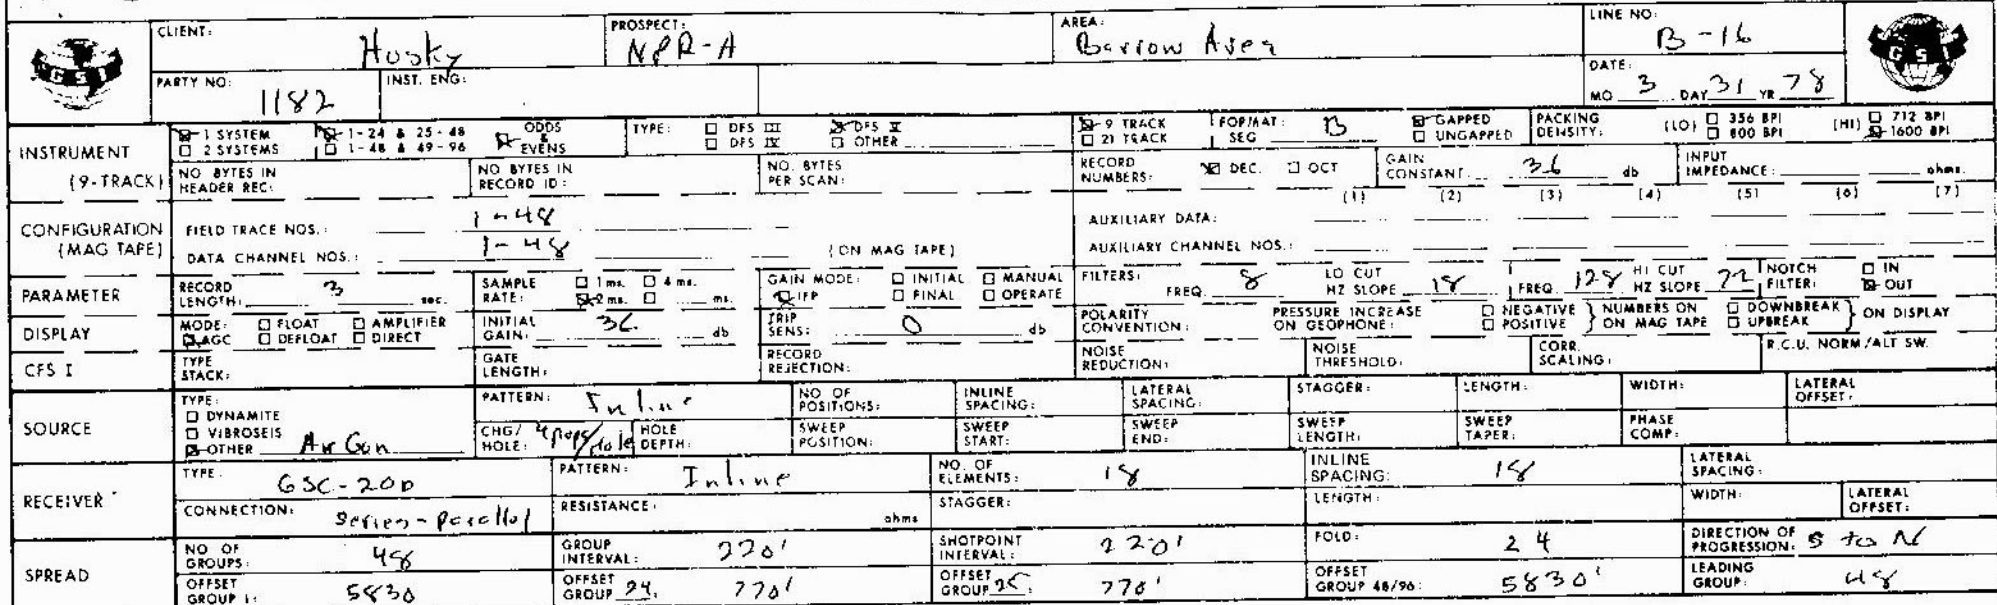 CLIENT: Husky PROSPECT: NPR-A AREA: Barrow Area LINE NO: B-16
GSI
PARTY NO: 1182 INST. ENG: DATE: MO 3 DAY 31 YR 78
GSI
INSTRUMENT (9-TRACK)
1 SYSTEM 1-24 & 25-48 ODDS & EVENS TYPE: DFS III DFS V 9 TRACK FORMAT: B GAPPED PACKING DENSITY: (LO) 356 BPI (HI) 712 BPI
2 SYSTEMS 1-48 & 49-96 DFS IV OTHER 21 TRACK SEG UNGAPPED 800 BPI 1600 BPI
NO BYTES IN HEADER REC: NO BYTES IN RECORD ID: NO. BYTES PER SCAN: RECORD NUMBERS: DEC. OCT GAIN CONSTANT 36 db INPUT IMPEDANCE: ohms.
(1) (2) (3) (4) (5) (6) (7)
CONFIGURATION (MAG TAPE)
FIELD TRACE NOS.: 1-48 AUXILIARY DATA:
DATA CHANNEL NOS.: 1-48 (ON MAG TAPE) AUXILIARY CHANNEL NOS.:
PARAMETER
RECORD LENGTH: 3 sec. SAMPLE RATE: 1 ms. 4 ms. 2 ms. ms. GAIN MODE: INITIAL MANUAL IFP FINAL OPERATE FILTERS: FREQ 8 LO CUT HZ SLOPE 18 FREQ 128 HI CUT HZ SLOPE 72 NOTCH FILTER: IN OUT
DISPLAY
MODE: FLOAT AMPLIFIER AGC DEFLOAT DIRECT INITIAL GAIN: 36 db TRIP SENS: 0 db POLARITY CONVENTION: PRESSURE INCREASE ON GEOPHONE: NEGATIVE POSITIVE } NUMBERS ON ON MAG TAPE DOWNBREAK UPBREAK } ON DISPLAY
CFS I
TYPE STACK: GATE LENGTH: RECORD REJECTION: NOISE REDUCTION: NOISE THRESHOLD: CORR. SCALING: R.C.U. NORM/ALT SW.
SOURCE
TYPE: DYNAMITE VIBROSEIS OTHER Air Gun PATTERN: Inline NO OF POSITIONS: INLINE SPACING: LATERAL SPACING: STAGGER: LENGTH: WIDTH: LATERAL OFFSET:
CHG/HOLE: 4 pops/hole HOLE DEPTH: SWEEP POSITION: SWEEP START: SWEEP END: SWEEP LENGTH: SWEEP TAPER: PHASE COMP:
RECEIVER
TYPE. GSC-20D PATTERN: Inline NO. OF ELEMENTS: 18 INLINE SPACING: 18 LATERAL SPACING:
CONNECTION: Series-parallel RESISTANCE: ohms STAGGER: LENGTH: WIDTH: LATERAL OFFSET:
SPREAD
NO OF GROUPS: 48 GROUP INTERVAL: 220' SHOTPOINT INTERVAL: 220' FOLD: 24 DIRECTION OF PROGRESSION: S to N
OFFSET GROUP 1: 5830 OFFSET GROUP 24: 770' OFFSET GROUP 25: 770' OFFSET GROUP 48/96: 5830' LEADING GROUP: 48